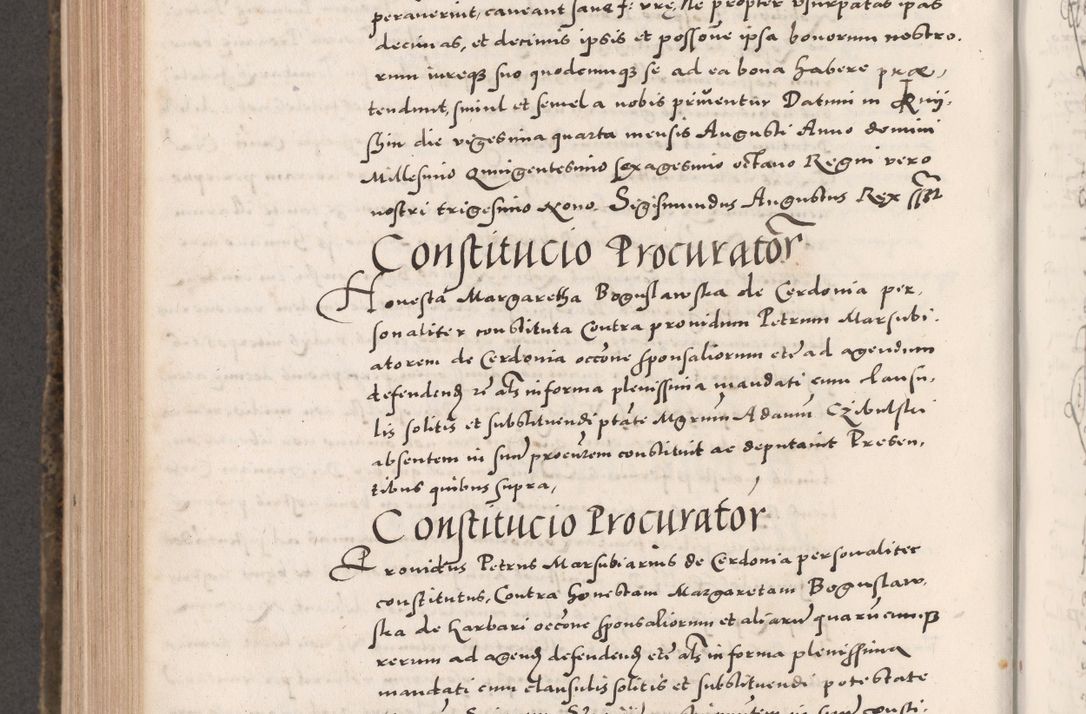 peraverint, caveant sane f: vre, Ne propter usurpatas ipas
decimas, et decimis ipsis et possone ipsa bonorum nostro.
rum iureqз suo quodcumqз se ad ea bona habere præ,
tendunt, simul et semel a nobis priventur Datum in Knÿ,
shin die vigesima quarta mensis Augusti Anno domini
Millesimo Quingentesimo sexagesimo octavo Regni vero
nostri trigesimo Nono. Sigismundus Augustus Rex
Constitucio Procurator
Honesta Margaretha Boguslawska de Cerdonia per,
sonaliter constituta Contra providum Petrum Marsubi,
atorem de Cerdonia occone sponsaliorum etc ad agendum
defendend re als in forma plenissima mandati cum clausu,
lis solitis et substituendi ptate Mgrum Adamum Czibulski
absentem in suum procurem constituit ac deputavit Presen,
tibus quibus supra,
Constitucio Procurator
Providus Petrus Marsubiarius de Cerdonia personaliter
constitutus, Contra honestam Margaretam Boguslaw,
ska de harbari occone sponsaliorum et aliarum quarucumqз
rerum ad agend defendend etc als in forma plenissima
mandati cum clausulis solitis et substituendi potestate